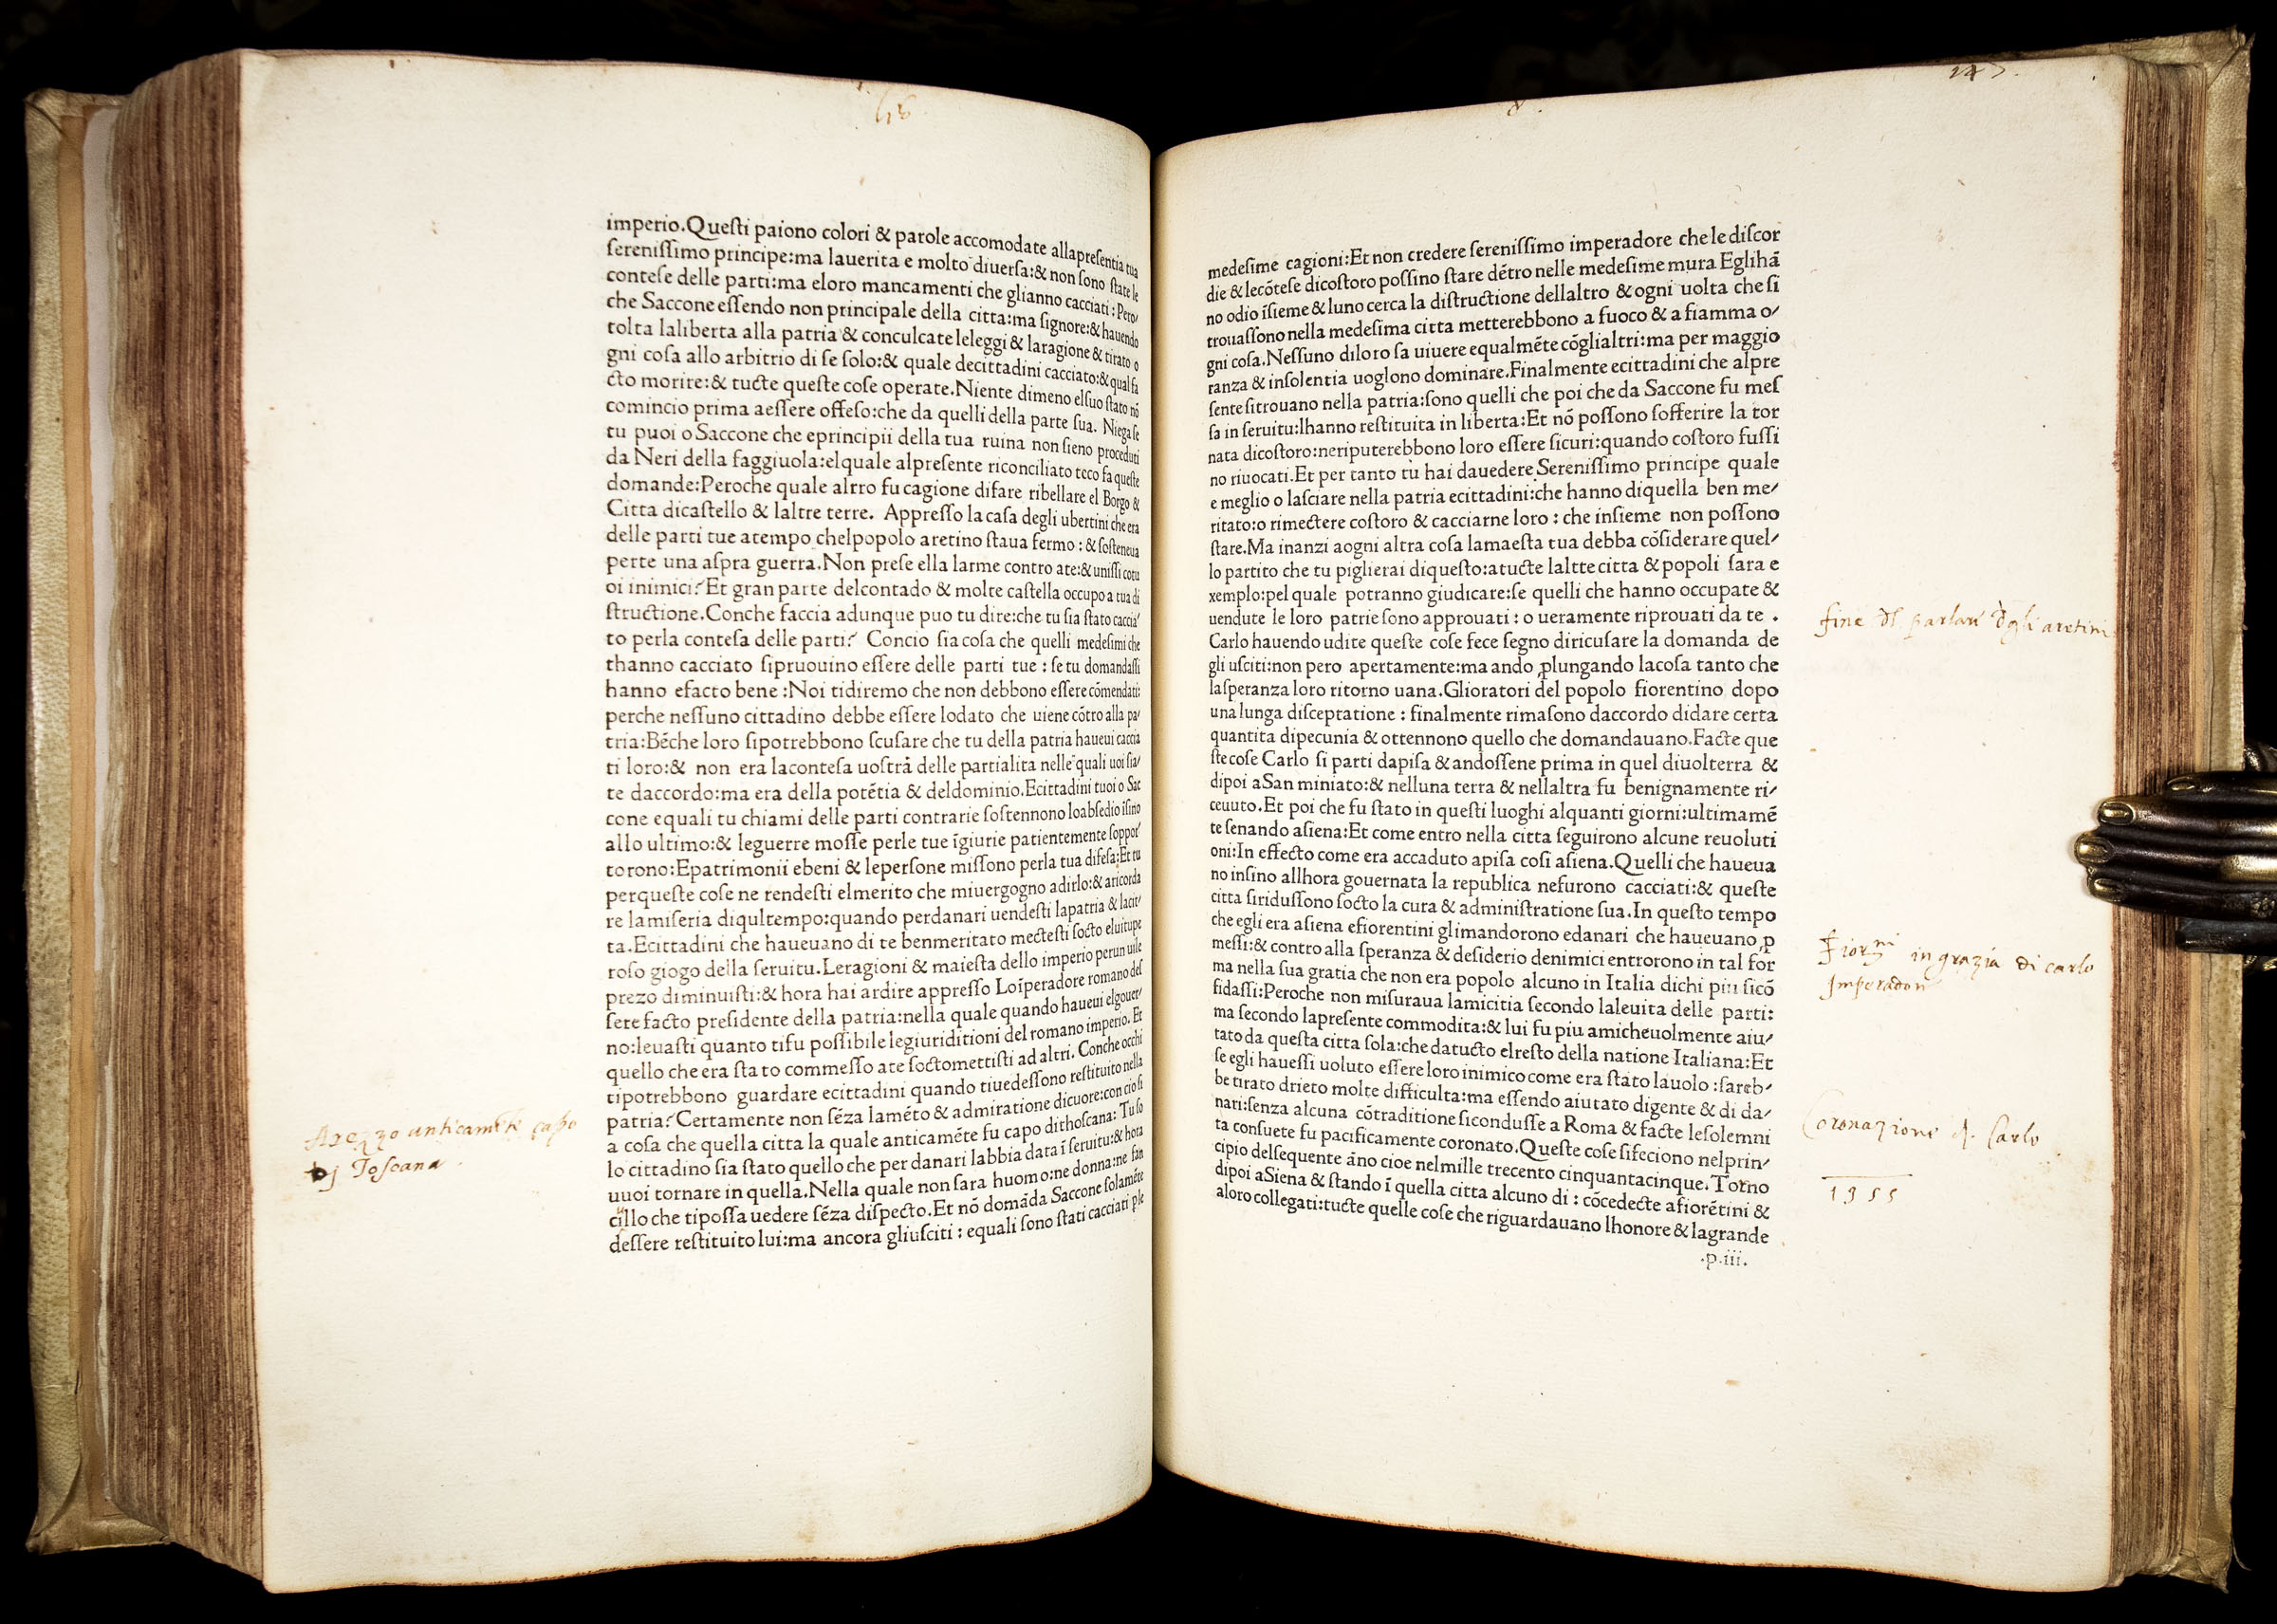 lib
imperio.Queſti paiono colori & parole accomodate allapreſentia tua
ſereniſſimo principe:ma lauerita e molto diuerſa:& non ſono ſtate le
conteſe delle parti:ma eloro mancamenti che glianno cacciati:Pero/
che Saccone eſſendo non principale della citta:ma ſignore:& hauendo
tolta laliberta alla patria & conculcate leleggi & laragione & tirato o
gni coſa allo arbitrio di ſe ſolo:& quale decittadini cacciato:& qual fa
cto morire:& tucte queſte coſe operate.Niente dimeno elſuo ſtato nõ
comincio prima aeſſere offeſo:che da quelli della parte ſua. Niega ſe
tu puoi o Saccone che eprincipii della tua ruina non ſieno proceduti
da Neri della faggiuola:elquale alpreſente riconciliato teco fa queſte
domande:Peroche quale alrro fu cagione difare ribellare el Borgo &
Citta dicaſtello & laltre terre. Appreſſo la caſa degli ubertini che era
delle parti tue atempo chelpopolo aretino ſtaua fermo : & ſoſteneua
perte una aſpra guerra.Non preſe ella larme contro ate:& uniſſi cotu
oi inimici? Et gran parte delcontado & molte caſtella occupo a tua di
ſtructione.Conche faccia adunque puo tu dire:che tu ſia ſtato caccia/
to perla conteſa delle parti? Concio ſia coſa che quelli medeſimi che
thanno cacciato ſipruouino eſſere delle parti tue : ſe tu domandaſſi
hanno efacto bene :Noi tidiremo che non debbono eſſere cõmendati:
perche neſſuno cittadino debbe eſſere lodato che uiene cõtro alla pa/
tria:Bẽche loro ſipotrebbono ſcuſare che tu della patria haueui caccia
ti loro:& non era laconteſa uoſtra delle partialita nelle quali uoi ſia/
te daccordo:ma era della potẽtia & deldominio.Ecittadini tuoi o Sac
cone equali tu chiami delle parti contrarie ſoſtennono loabſedio ĩſino
allo ultimo:& leguerre moſſe perle tue ĩgiurie patientemente ſoppor/
torono:Epatrimonii ebeni & leperſone miſſono perla tua difeſa:Et tu
perqueſte coſe ne rendeſti elmerito che miuergogno adirlo:& aricorda
re lamiſeria diqultempo:quando perdanari uendeſti lapatria & lacit/
ta.Ecittadini che haueuano di te benmeritato mecteſti ſocto eluitupe
roſo giogo della ſeruitu.Leragioni & maieſta dello imperio perun uile
prezo diminuiſti:& hora hai ardire appreſſo Loĩperadore romano deſ
ſere facto preſidente della patria:nella quale quando haueui elgouer/
no:leuaſti quanto tifu poſſibile legiuriditioni del romano imperio. Et
quello che era ſta to commeſſo ate ſoctomettiſti ad altri. Conche occhi
tipotrebbono guardare ecittadini quando tiuedeſſono reſtituito nella
patria? Certamente non ſẽza lamẽto & admiratione dicuore:con cio ſi
a coſa che quella citta la quale anticamẽte fu capo dithoſcana: Tu ſo
lo cittadino ſia ſtato quello che per danari labbia data ĩ ſeruitu:& hora
uuoi tornare in quella.Nella quale non ſara huomo:ne donna:ne fan
cillo che tipoſſa uedere ſẽza diſpecto.Et nõ domãda Saccone ſolamẽte
deſſere reſtituito lui:ma ancora gliuſciti : equali ſono ſtati cacciati ple
Arezzo anticamẽte capo
di Toſcana
8.
147.
medeſime cagioni:Et non credere ſereniſſimo imperadore che le diſcor
die & lecõteſe dicoſtoro poſſino ſtare dẽtro nelle medeſime mura Eglihã
no odio ĩſieme & luno cerca la diſtructione dellaltro & ogni uolta che ſi
trouaſſono nella medeſima citta metterebbono a fuoco & a fiamma o/
gni coſa.Neſſuno diloro ſa uiuere equalmẽte cõglialtri:ma per maggio
ranza & inſolentia uoglono dominare.Finalmente ecittadini che alpre
ſente ſitrouano nella patria:ſono quelli che poi che da Saccone fu meſ
ſa in ſeruitu:lhanno reſtituita in liberta:Et nõ poſſono ſofferire la tor
nata dicoſtoro:neriputerebbono loro eſſere ſicuri:quando coſtoro fuſſi
no riuocati.Et per tanto tu hai dauedere Sereniſſimo principe quale
e meglio o laſciare nella patria ecittadini:che hanno diquella ben me/
ritato:o rimectere coſtoro & cacciarne loro : che inſieme non poſſono
ſtare.Ma inanzi aogni altra coſa lamaeſta tua debba cõſiderare quel/
lo partito che tu piglierai diqueſto:atucte laltte citta & popoli ſara e
xemplo:pel quale potranno giudicare:ſe quelli che hanno occupate &
uendute le loro patrie ſono approuati : o ueramente riprouati da te .
Carlo hauendo udite queſte coſe fece ſegno diricuſare la domanda de
gli uſciti:non pero apertamente:ma ando ꝓlungando lacoſa tanto che
laſperanza loro ritorno uana.Glioratori del popolo fiorentino dopo
una lunga diſceptatione : finalmente rimaſono daccordo didare certa
quantita dipecunia & ottennono quello che domandauano.Facte que
ſte coſe Carlo ſi parti dapiſa & andoſſene prima in quel diuolterra &
dipoi aSan miniato:& nelluna terra & nellaltra fu benignamente ri/
ceuuto.Et poi che fu ſtato in queſti luoghi alquanti giorni:ultimamẽ
te ſenando aſiena:Et come entro nella citta ſeguirono alcune reuoluti
oni:In effecto come era accaduto apiſa coſi aſiena.Quelli che haueua
no inſino allhora gouernata la republica nefurono cacciati:& queſte
citta ſiriduſſono ſocto la cura & adminiſtratione ſua.In queſto tempo
che egli era aſiena efiorentini glimandorono edanari che haueuano ꝓ
meſſi:& contro alla ſperanza & deſiderio denimici entrorono in tal for
ma nella ſua gratia che non era popolo alcuno in Italia dichi piu ſicõ
fidaſſi:Peroche non miſuraua lamicitia ſecondo laleuita delle parti:
ma ſecondo lapreſente commodita:& lui fu piu amicheuolmente aiu/
tato da queſta citta ſola:che datucto elreſto della natione Italiana:Et
ſe egli haueſſi uoluto eſſere loro inimico come era ſtato lauolo :ſareb/
be tirato drieto molte difficulta:ma eſſendo aiutato digente & di da/
nari:ſenza alcuna cõtraditione ſiconduſſe a Roma & facte leſolemni
ta conſuete fu pacificamente coronato.Queſte coſe ſifeciono nelprin/
cipio delſequente ãno cioe nelmille trecento cinquantacinque.Torno
dipoi aSiena & ſtando ĩ quella citta alcuno di : cõcedecte afiorẽtini &
aloro collegati:tucte quelle coſe che riguardauano lhonore & lagrande
.p.iii.
fine dl parlari dgli aretini
Fiorni in grazia di carlo
Imperadon
Coronazione d. Carlo
1355